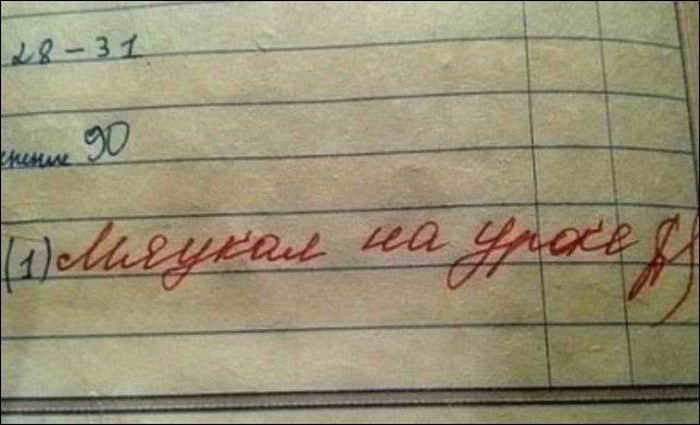 28-31
90
(1) Мяукал на уроке